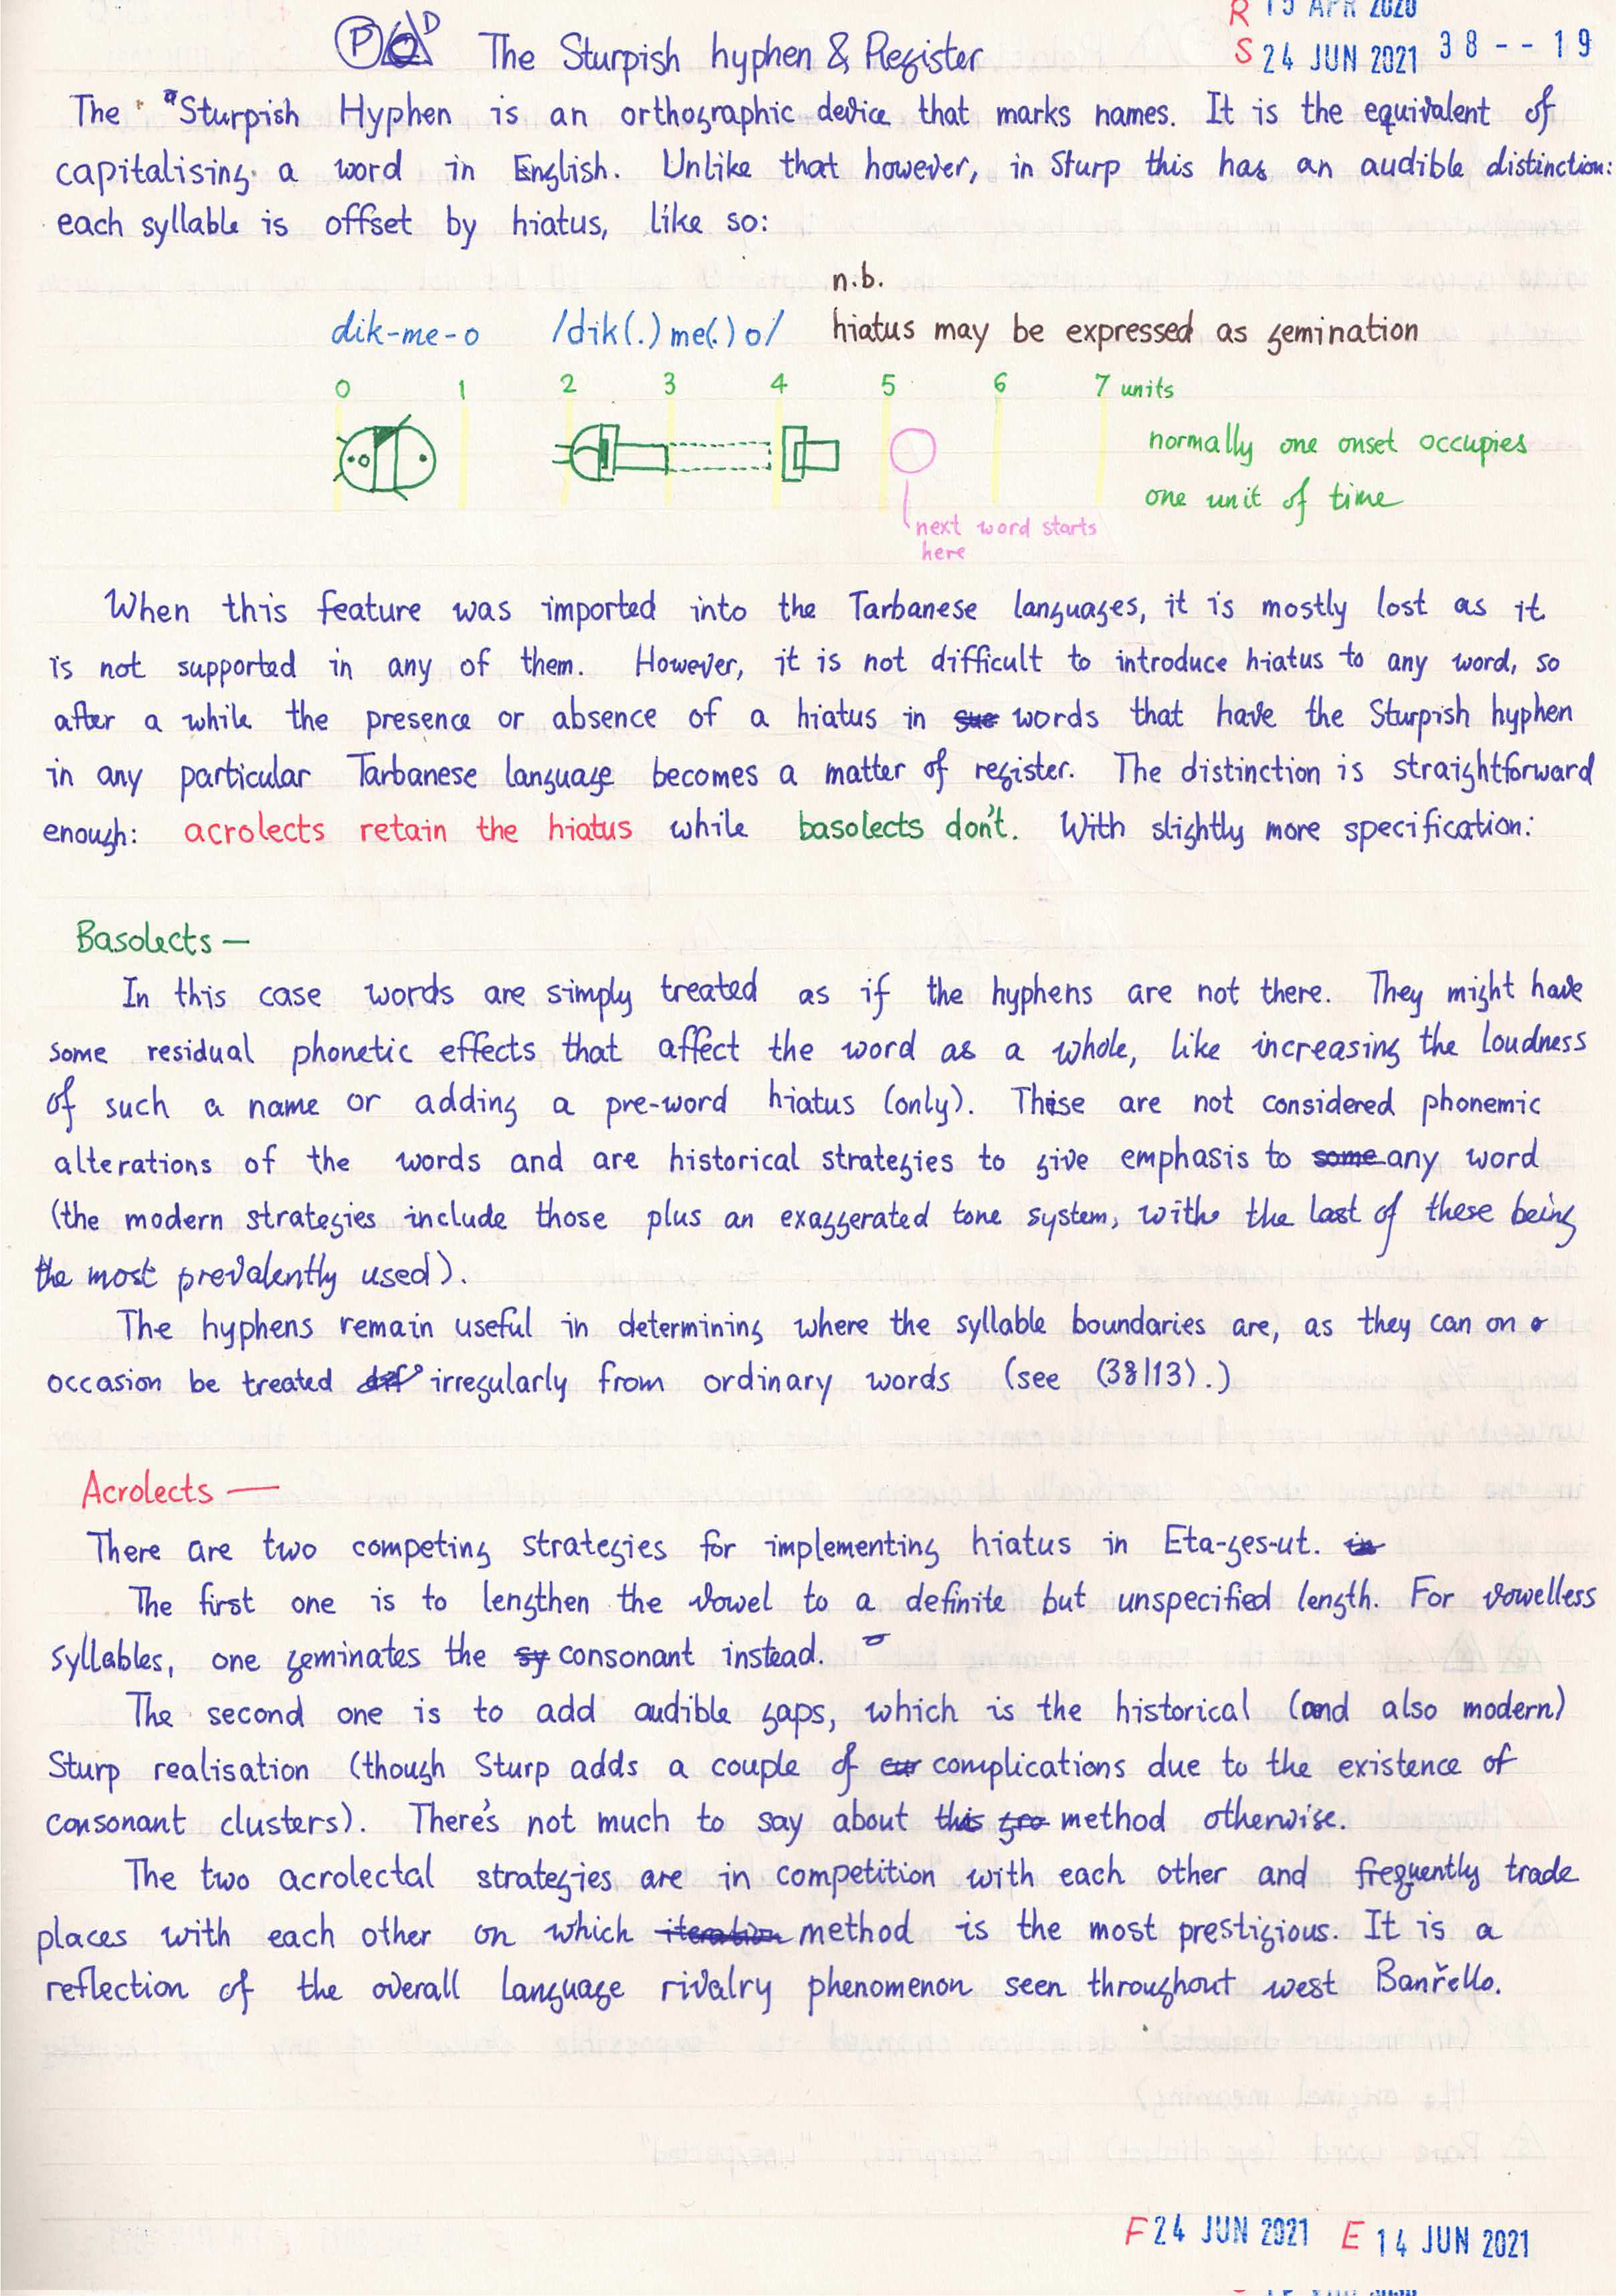 R 15 APR 2020
P D The Sturpish hyphen & Register S 24 JUN 2021 38 -- 19
The Sturpish Hyphen is an orthographic device that marks names. It is the equivalent of
capitalising a word in English. Unlike that however, in Sturp this has an audible distinction:
each syllable is offset by hiatus, like so:
n.b.
dik-me-o /dik(.)me(.)o/ hiatus may be expressed as gemination
0 1 2 3 4 5 6 7 units
normally one onset occupies
one unit of time
next word starts
here
When this feature was imported into the Tarbanese languages, it is mostly lost as it
is not supported in any of them. However, it is not difficult to introduce hiatus to any word, so
after a while the presence or absence of a hiatus in sue words that have the Sturpish hyphen
in any particular Tarbanese language becomes a matter of register. The distinction is straightforward
enough: acrolects retain the hiatus while basolects don't. With slightly more specification:
Basolects —
In this case words are simply treated as if the hyphens are not there. They might have
some residual phonetic effects that affect the word as a whole, like increasing the loudness
of such a name or adding a pre-word hiatus (only). These are not considered phonemic
alterations of the words and are historical strategies to give emphasis to some any word
(the modern strategies include those plus an exaggerated tone system, with the last of these being
the most prevalently used).
The hyphens remain useful in determining where the syllable boundaries are, as they can on
occasion be treated irregularly from ordinary words (see (38|13).)
Acrolects —
There are two competing strategies for implementing hiatus in Eta-ges-ut. in
The first one is to lengthen the vowel to a definite but unspecified length. For vowelless
syllables, one geminates the sy consonant instead.
The second one is to add audible gaps, which is the historical (and also modern)
Sturp realisation (though Sturp adds a couple of complications due to the existence of
consonant clusters). There's not much to say about this gro method otherwise.
The two acrolectal strategies are in competition with each other and frequently trade
places with each other on which iteration method is the most prestigious. It is a
reflection of the overall language rivalry phenomenon seen throughout west Banřello.
F 24 JUN 2021 E 14 JUN 2021